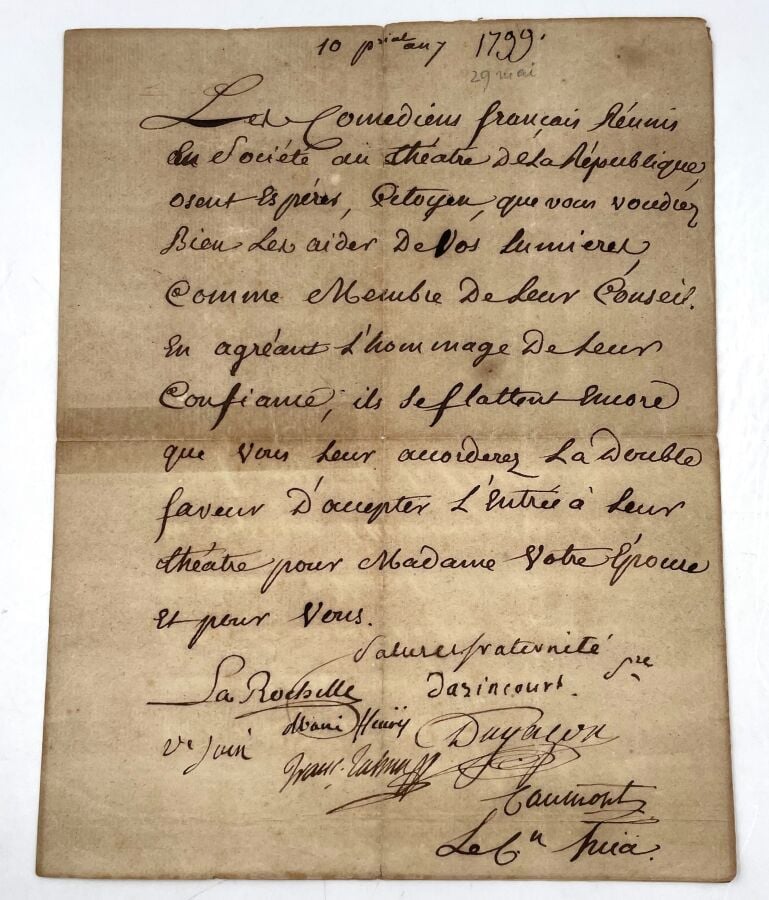 10 prial an 7 1799.
29 mai
Les Comédiens français Réunis
En Société au théâtre De La République,
osent Espérer, Citoyen, que vous voudrez
Bien Les aider De Vos lumieres,
Comme Membre De Leur Conseil.
En agréant L'hommage De Leur
Confiance, ils se flattent Encore
que Vous Leur accorderez La Double
faveur D'accepter L'Entrée à Leur
théâtre pour Madame Votre Épouse
Et pour Vous.
Salut et fraternité
La Rochelle Dazincourt. Sre
Ve Juin Henry Dugazon
Caumont
Le Cn